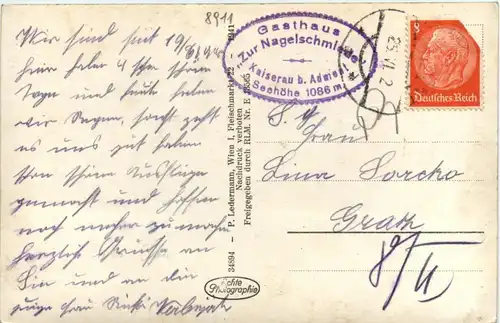 8911
Wir sind seit 19/6
hier haben 4 schöne
Tage und heute haben
wir Regen, sonst geht
es uns gut haben
schon schöne Ausflüge
gemacht und hoffen
noch mehr zu machen
herzliche Grüsse an
Sie und an die
junge Frau
34894 — P. Ledermann, Wien I, Fleischmarkt 12 — 1941
Nachdruck verboten
Freigegeben durch RLM. Nr. E
Echte
Photographie
Gasthaus
„Zur Nagelschmiede"
Kaiserau b. Admont
Seehöhe 1086 m
25.VI.
8
Deutsches Reich
Frau
Lina Sorcko
Graz
8/II